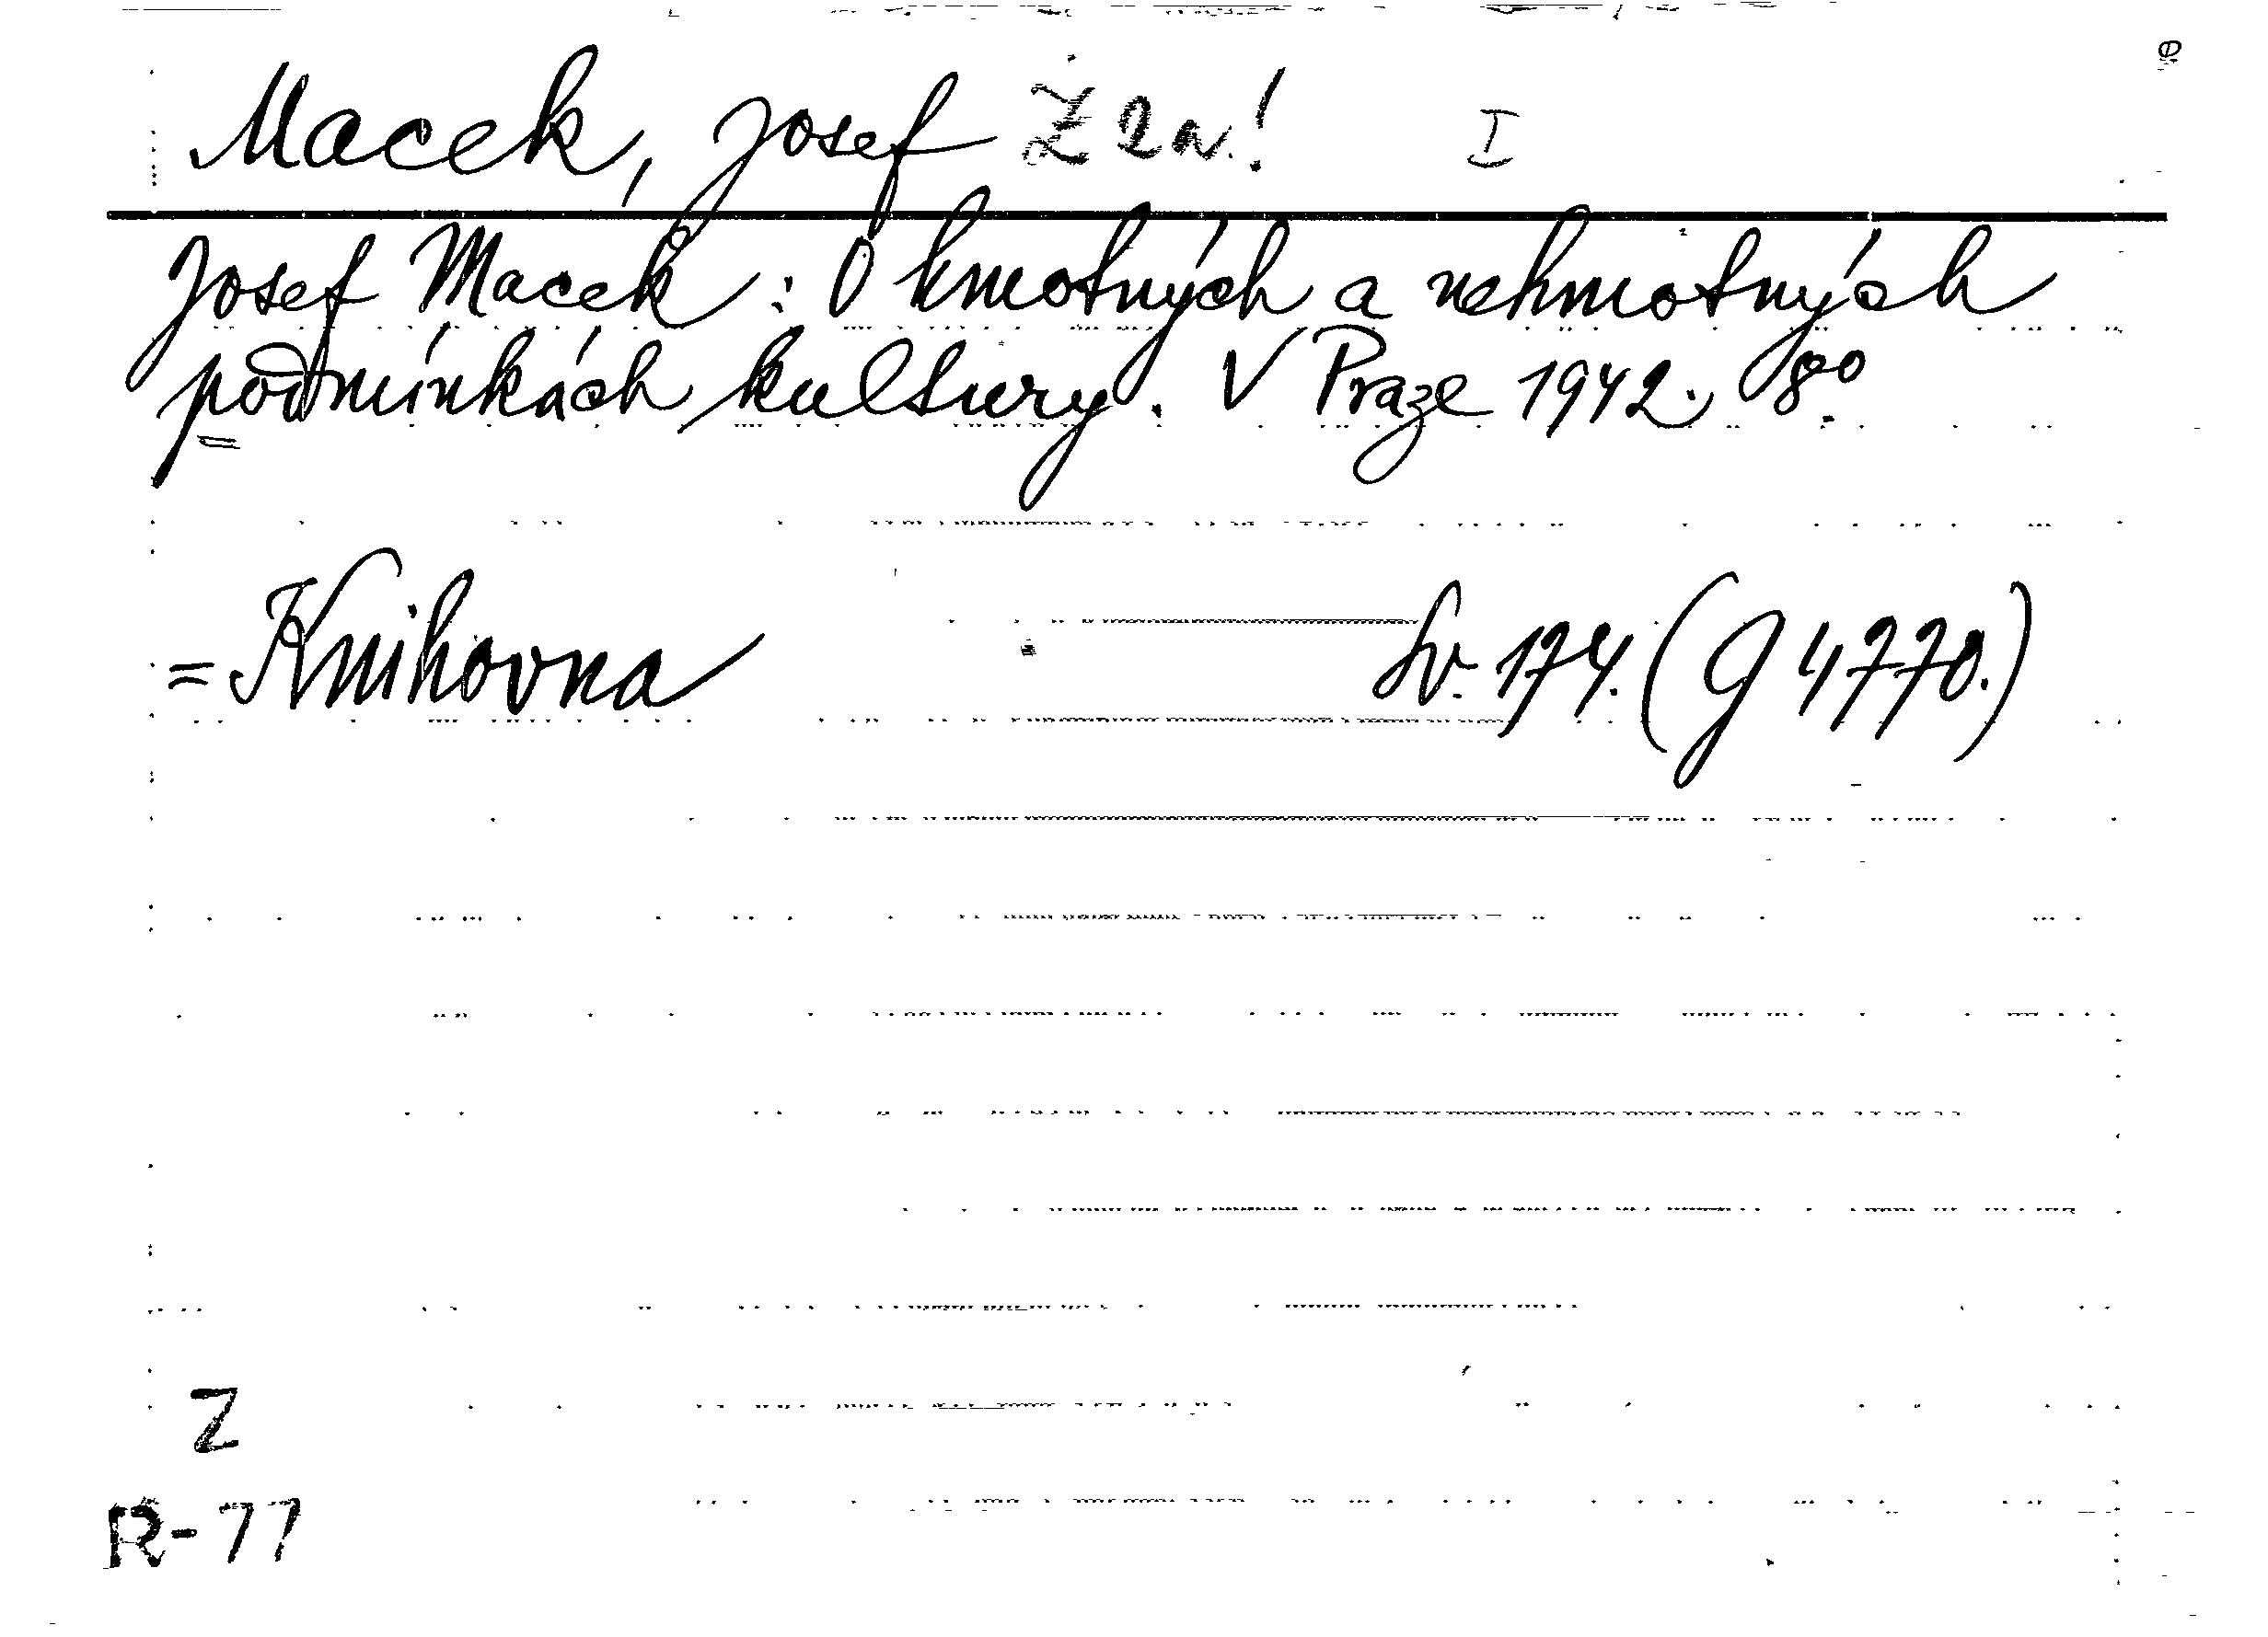 Macek, Josef Z 2a! I
Josef Macek: O hmotných a nehmotných
podmínkách kultury. V Praze 1942. 8°.
= Knihovna Sv. 174. (G 4770.)
Z
R-77